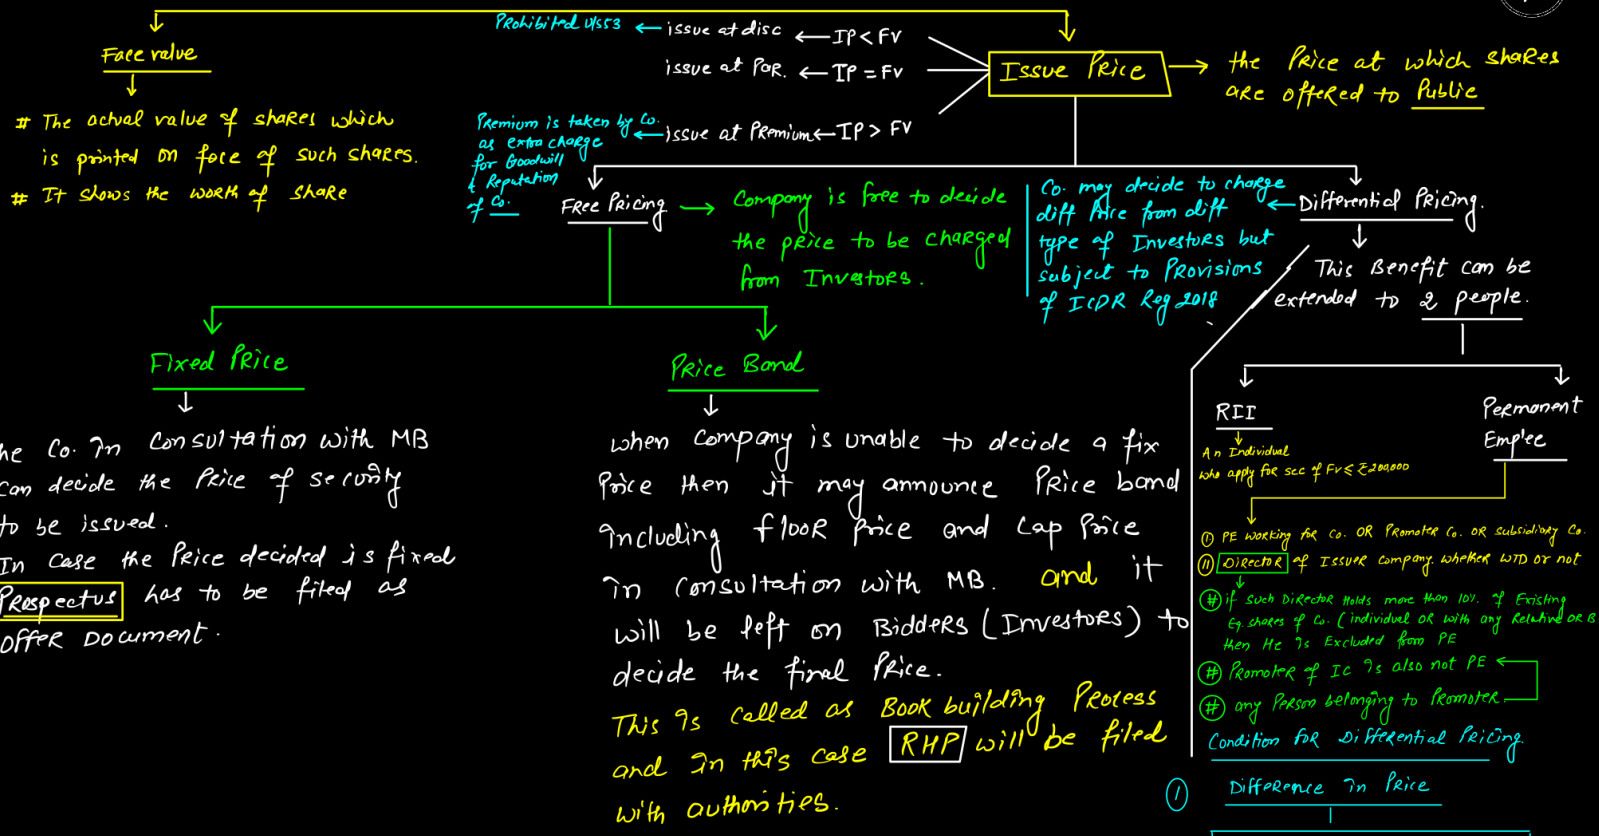 Face value
# The actual value of shares which
is printed on face of such shares.
# It shows the worth of share
Prohibited u/s53 ← issue at disc ← IP < FV
issue at Par. ← IP = FV
Premium is taken by Co.
as extra charge
for Goodwill
& Reputation
of Co.
issue at Premium ← IP > FV
Issue Price
the Price at which shares
are offered to Public
Free Pricing
Company is free to decide
the price to be charged
from Investors.
Co. may decide to charge
diff Price from diff
type of Investors but
subject to Provisions
of ICDR Reg 2018
Differential Pricing.
This Benefit can be
extended to 2 people.
Fixed Price
he Co. in Consultation with MB
can decide the Price of security
to be issued.
In case the Price decided is fixed
Prospectus has to be filed as
offer Document.
Price Band
when Company is unable to decide a fix
Price then it may announce Price band
including floor price and cap Price
in consultation with MB. and it
will be left on Bidders (Investors) to
decide the final Price.
This is called as Book building Process
and in this case RHP will be filed
with authorities.
RII
An Individual
who apply for sec of FV ≤ ₹200,000
Permanent
Emp'ee
(I) PE working for Co. OR Promoter Co. OR subsidiary Co.
(II) Director of Issuer company. whether WTD or not
# if such Director Holds more than 10% of Existing
Eq. shares of Co. (individual OR with any Relative OR B
then He is Excluded from PE
# Promoter of IC is also not PE
# any Person belonging to Promoter
Condition for Differential Pricing.
(1) Difference in Price